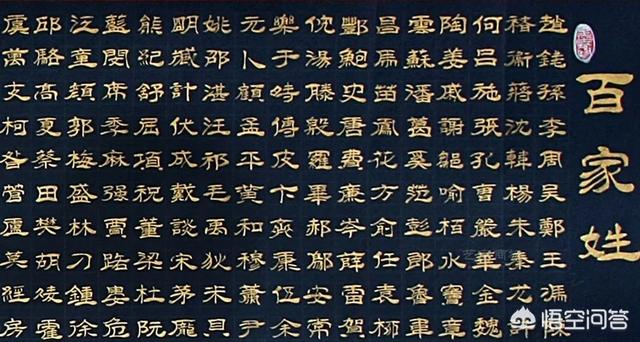 百家姓
趙錢孫李周吳鄭王馮陳
褚衛蔣沈韓楊朱秦尤許
何呂施張孔曹嚴華金魏
陶姜戚謝鄒喻柏水竇章
雲蘇潘葛奚范彭郎魯韋
昌馬苗鳳花方俞任袁柳
酆鮑史唐費廉岑薛雷賀
倪湯滕殷羅畢郝鄔安常
樂于時傅皮卞齊康伍余
元卜顧孟平黃和穆蕭尹
姚邵湛汪祁毛禹狄米貝
明臧計伏成戴談宋茅龐
熊紀舒屈項祝董梁杜阮
藍閔席季麻强賈路婁危
江童顏郭梅盛林刁鍾徐
邱駱高夏蔡田樊胡凌霍
虞萬支柯昝管盧莫經房
悟空问答